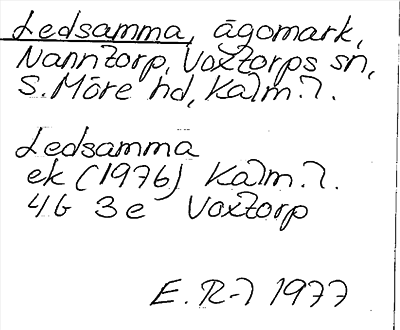 Ledsamma, ägomark,
Nanntorp, Voxtorps sn,
S. Möre hd, Kalm. l.
Ledsamma
ek (1976) Kalm. l.
4G 3e Voxtorp
E. R-l 1977